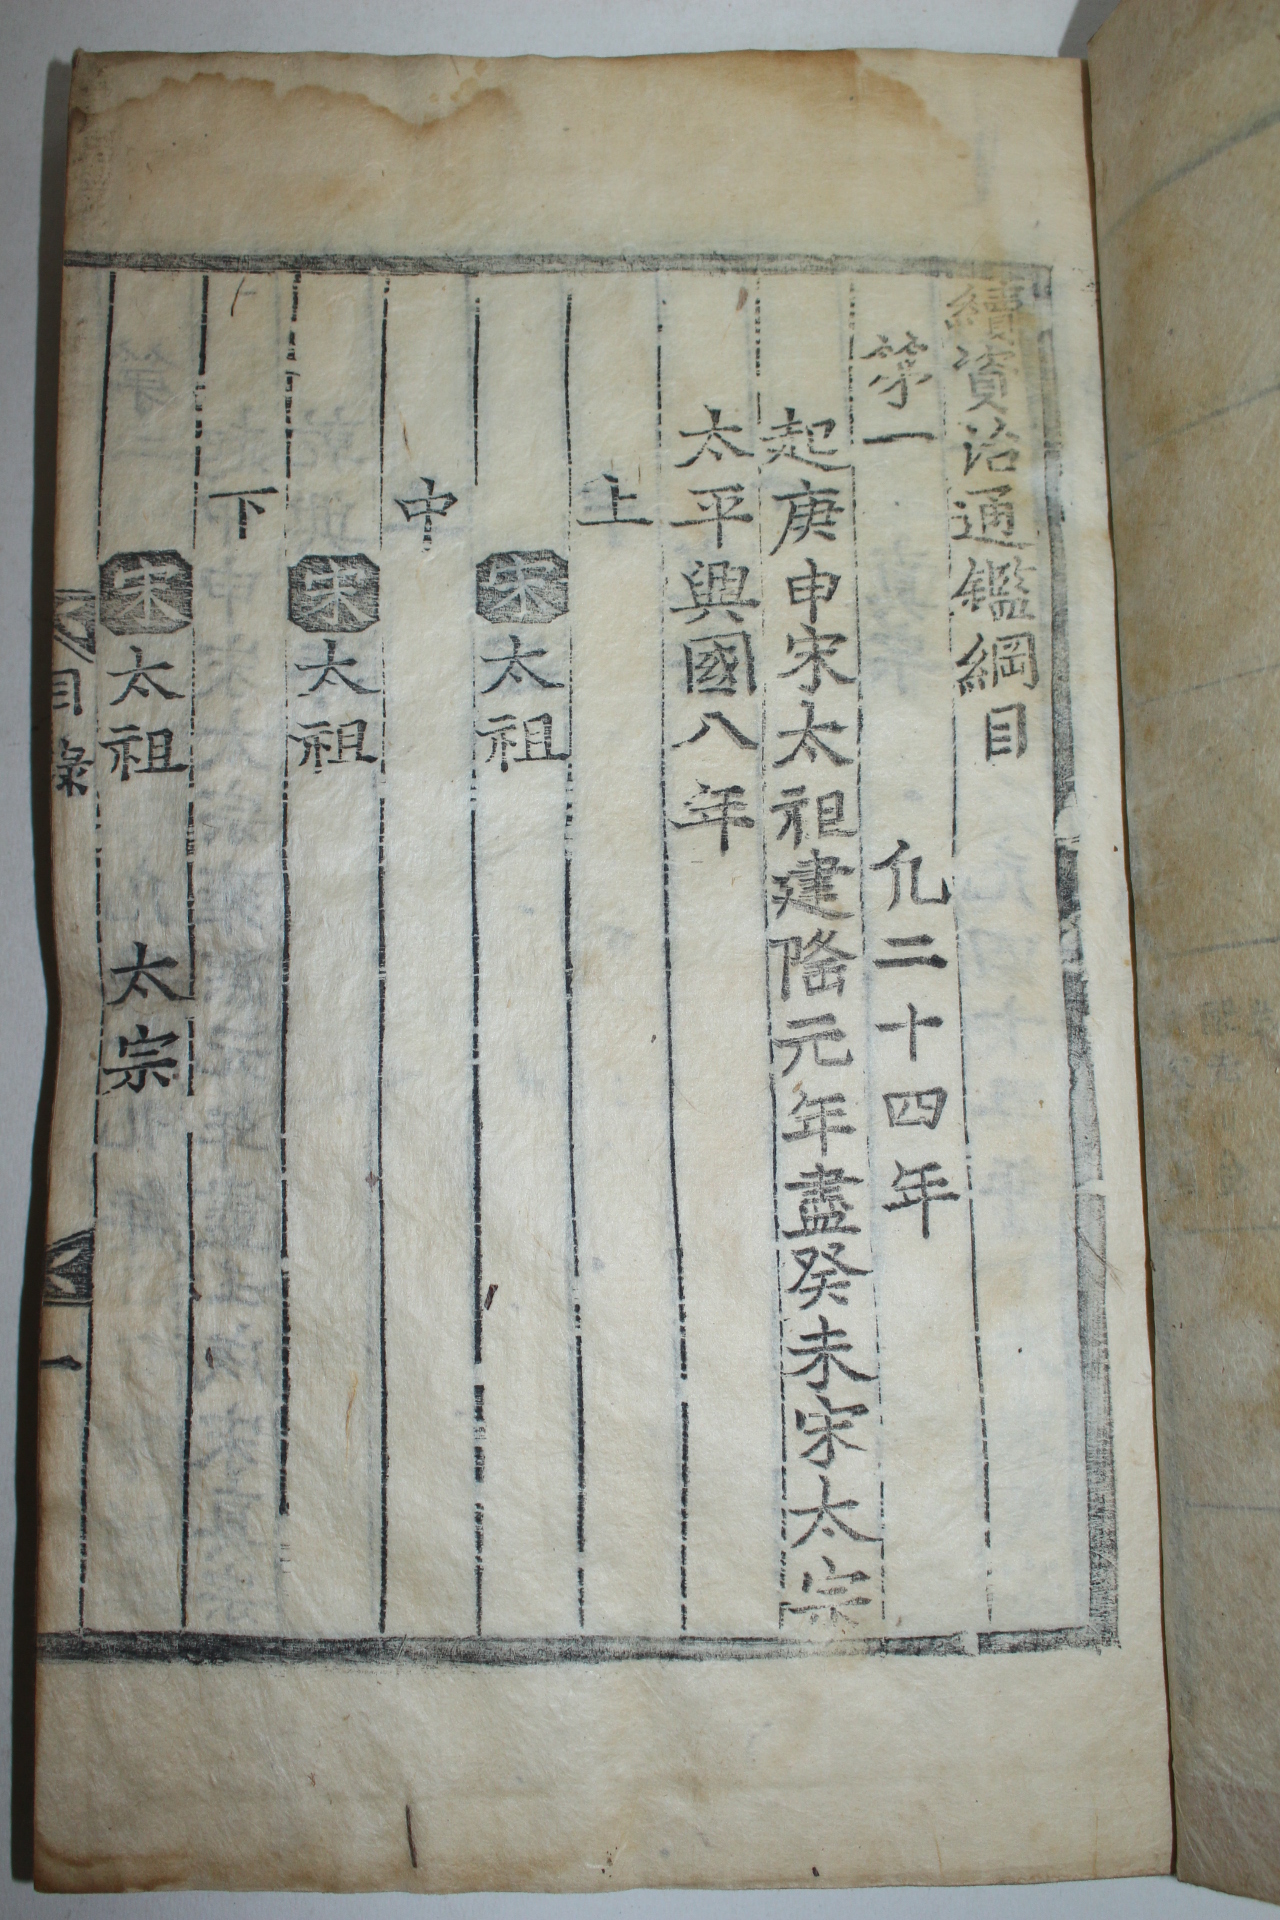 續資治通鑑綱目
第一 凢二十四年
起庚申宋太祖建隆元年盡癸未宋太宗
太平興國八年
上
宋太祖
中
宋太祖
下
宋太祖 太宗
目錄 一